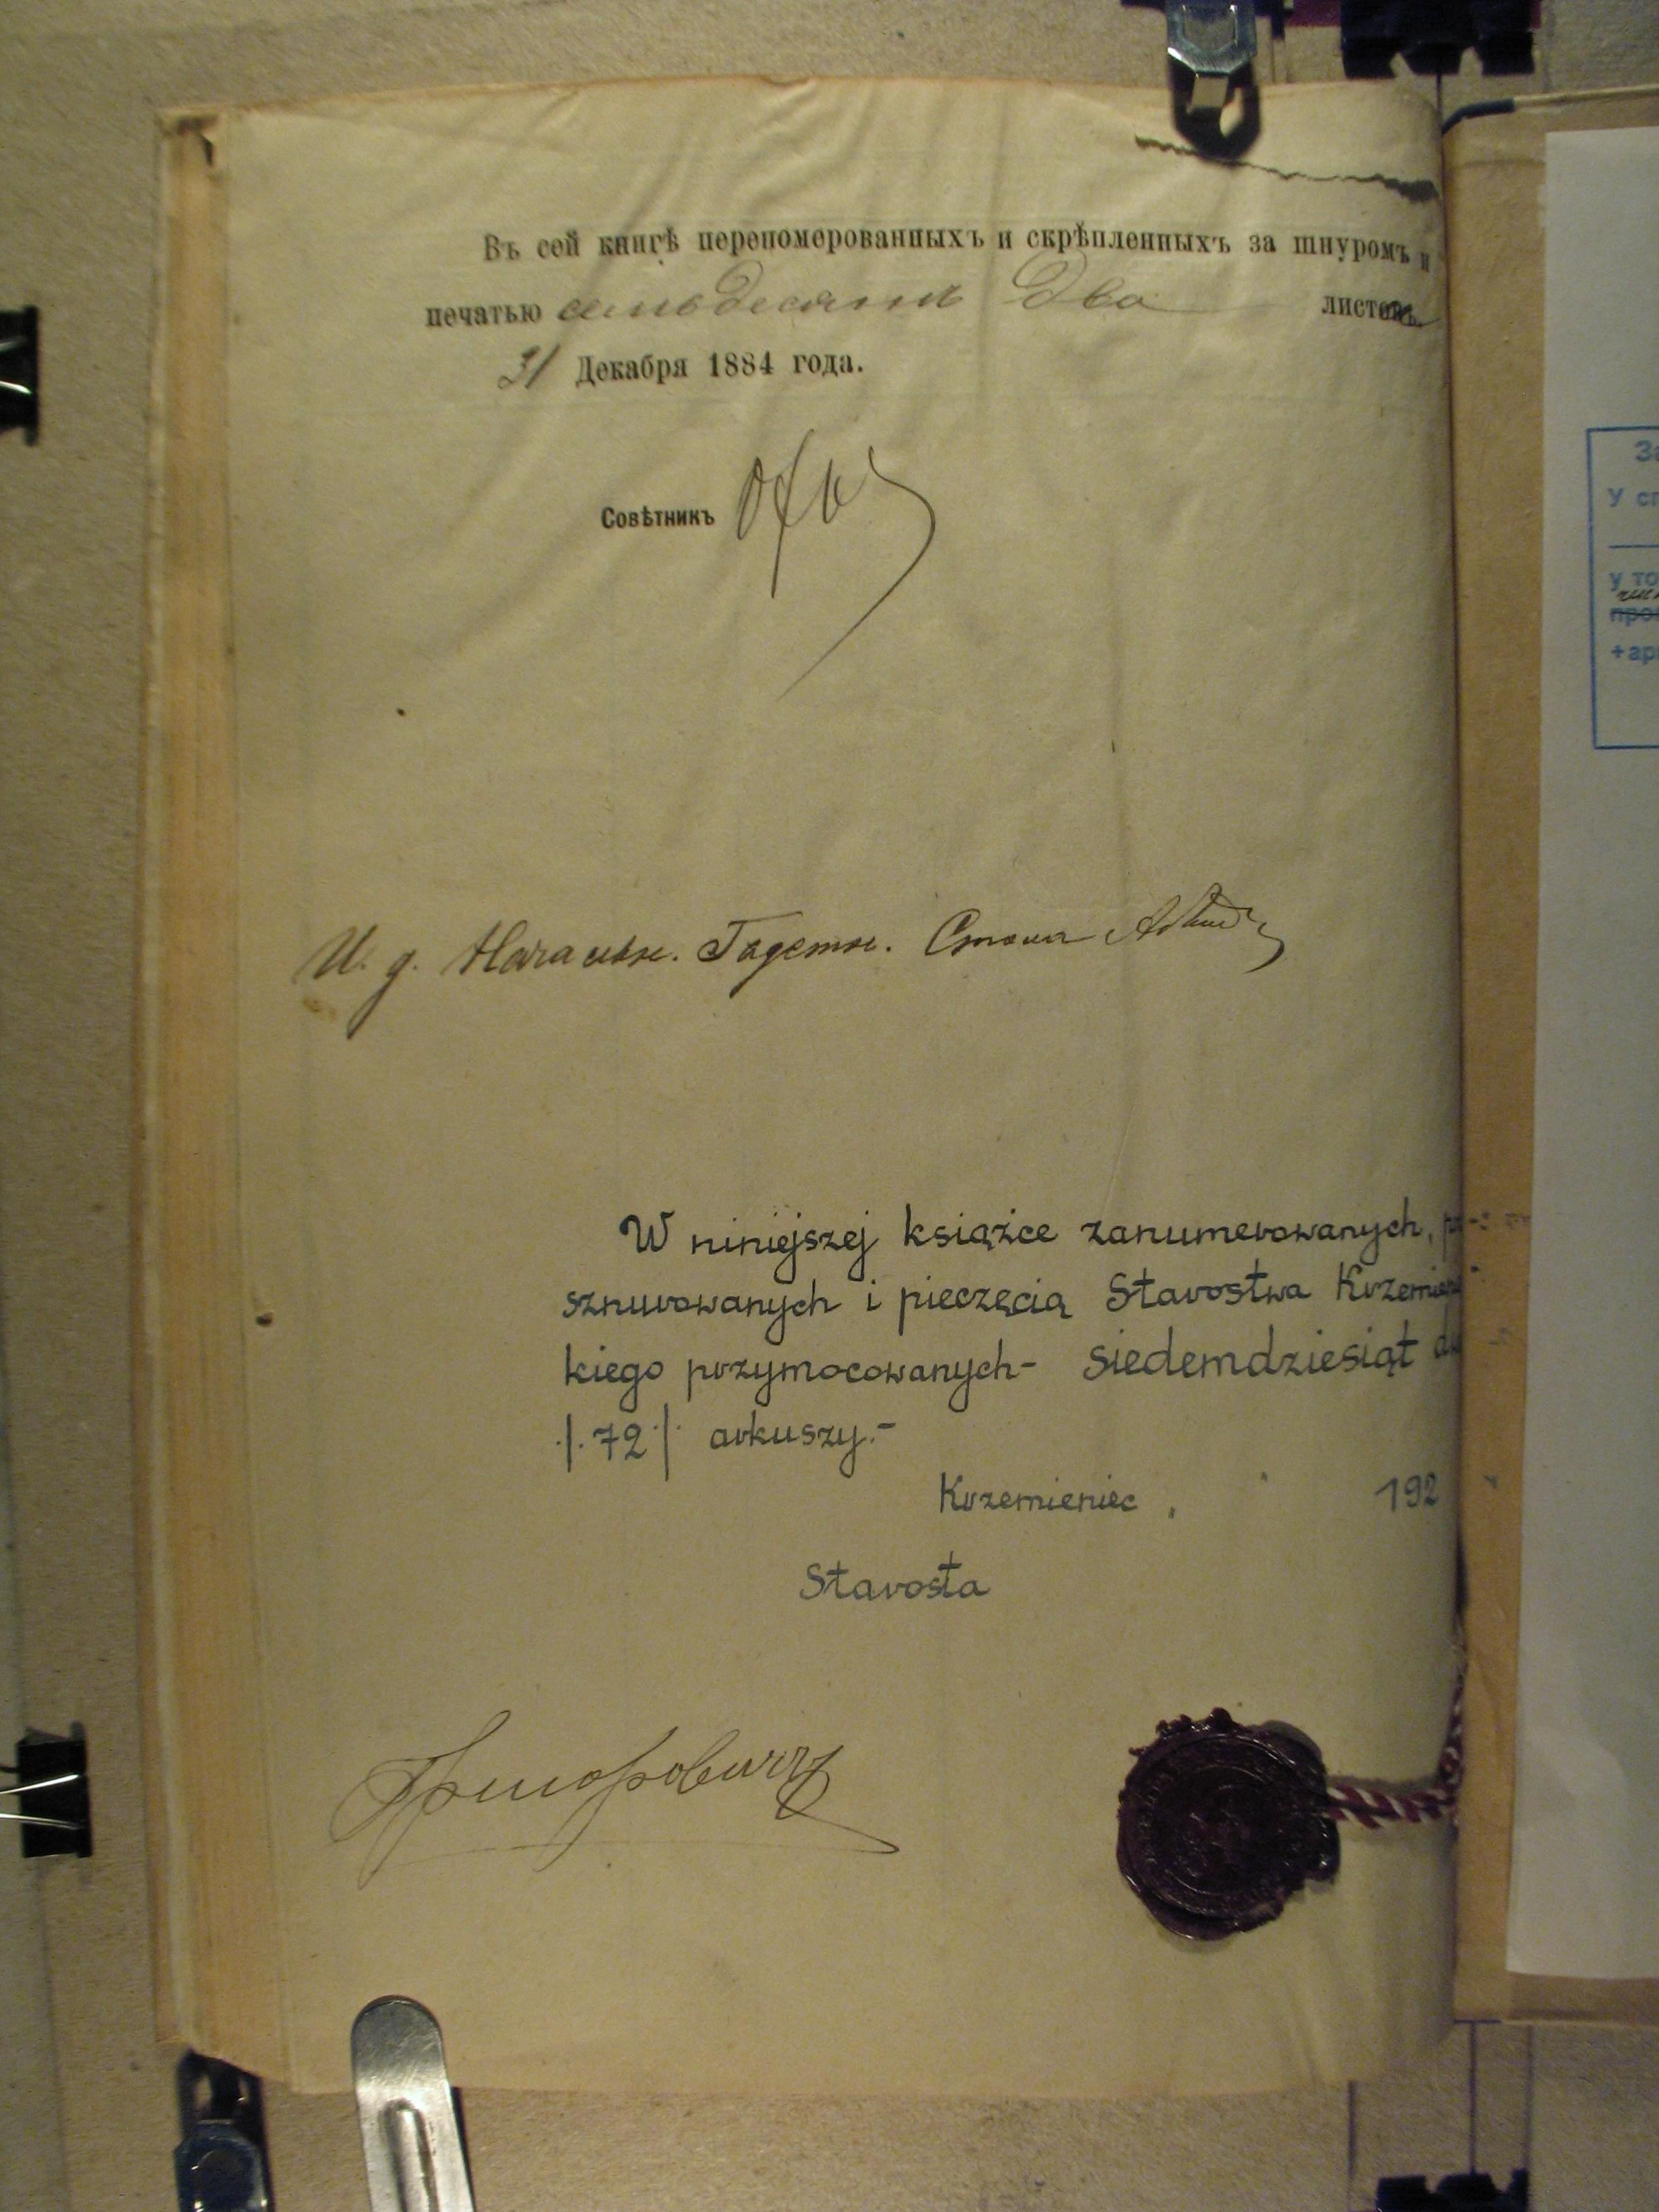 Въ сей книгѣ переномерованныхъ и скрѣпленныхъ за шнуромъ и
печатью семьдесятъ два листовъ.
31 Декабря 1884 года.
Совѣтникъ
И. д. Начальн. Газетн. Стола
W niniejszej książce zanumerowanych,
sznurowanych i pieczęcią Starostwa Krzemie
kiego przymocowanych- siedemdziesiąt
/.72/. arkuszy.-
Krzemieniec , 192
Starosta
За
У сп
у то
+ар